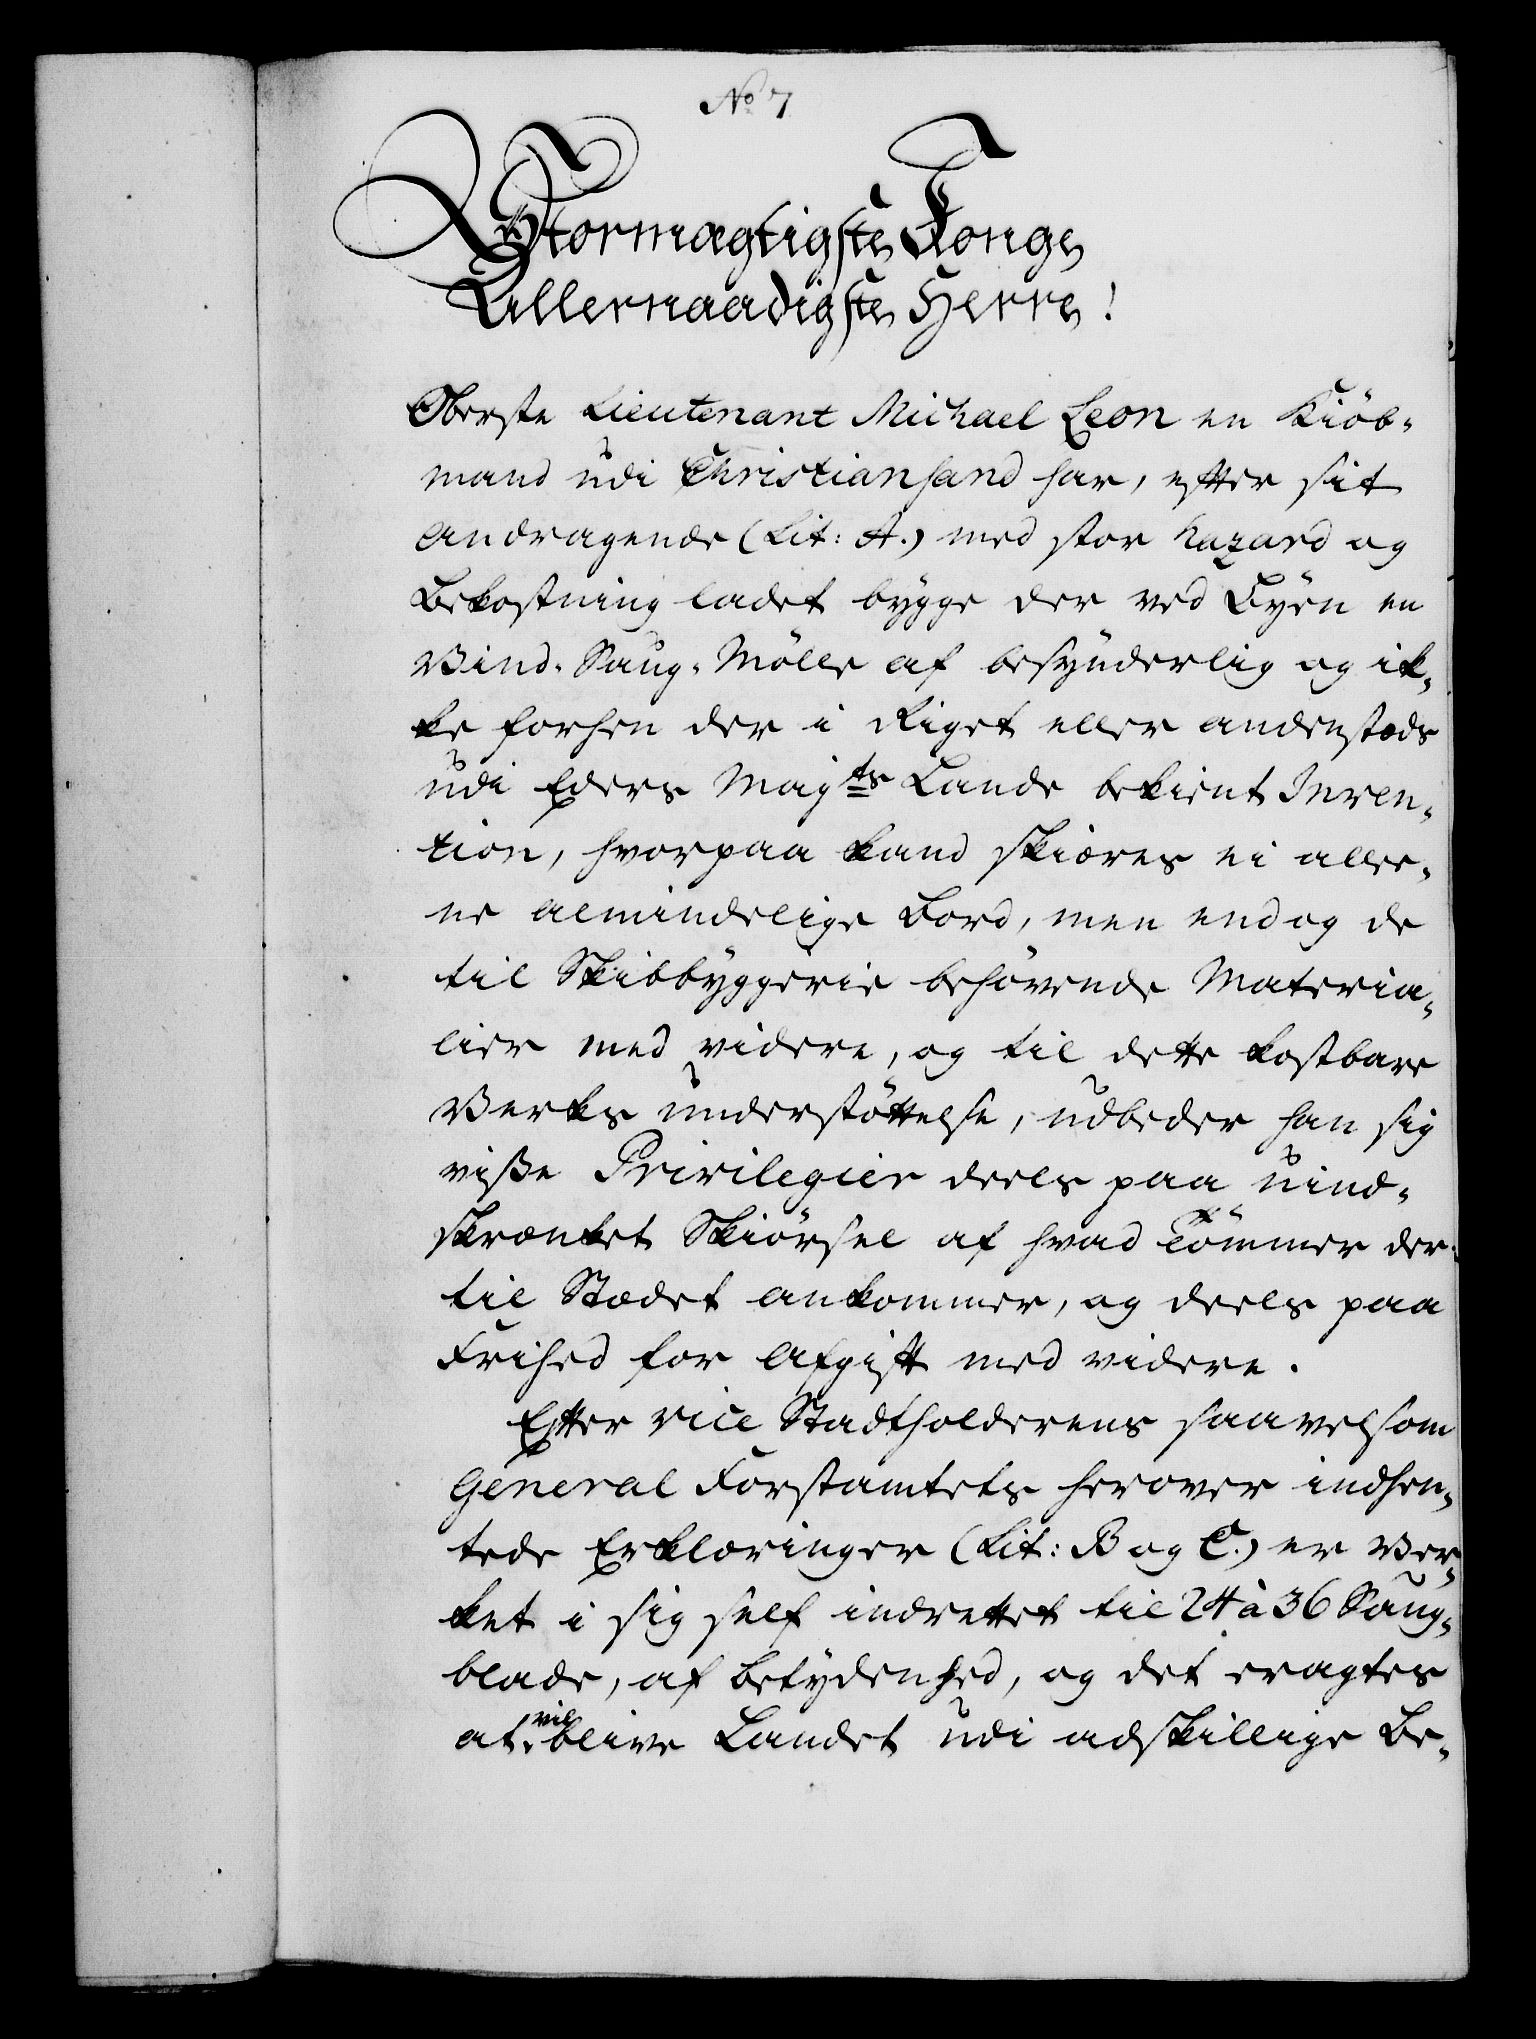 No 7
Stormægtigste Konge
Allernaadigste Herre!
Oberste Lieutenant Michael Leon en Kiöb-
mand udi Christiansand har, efter sit
andragende (Lit: A.) med stor hazard og
Bekostning ladet bygge der ved Byen en
Vind-Saug-Mölle af besynderlig og ik-
ke forhen der i Riget eller andenstæds
udi Eders Majts Lande bekient Inven-
tion, hvorpaa kand skiæres ei alle-
ne almindelige Bord, men endog de
til Skibbyggerie behövende Materia-
lier med videre, og til dette kostbare
Verks understöttelse, udbeder han sig
visse Privilegier deels paa uind-
skrænket Skiörsel af hvad Tömmer der
til Stædet ankommer, og deels paa
Frihed for Afgift med videre.
Efter vice Stadtholderens saavelsom
General Forstamtets herover indhen-
tede Erklæringer (Lit: B og C.) er Ver-
ket i sig self indrettet til 24 à 36 Saug-
blade, af betydenhed, og det eragtes
at vil blive Landet udi adskillige Be-